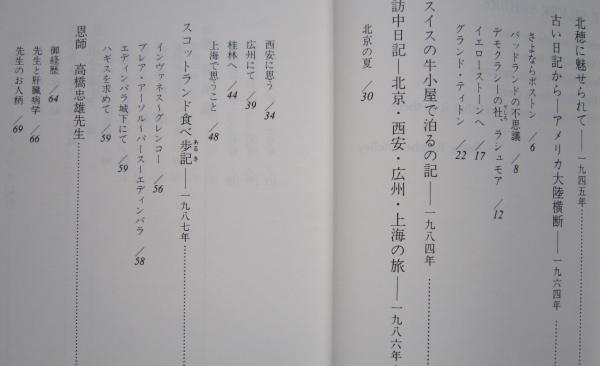 北穂に魅せられて――一九四五年
古い日記から――アメリカ大陸横断――一九六四年
さよならボストン／6
バッドランドの不思議／8
デモクラシーの社、ラシュモア／12
イエローストーンへ／17
グランド・ティトン／22
スイスの牛小屋で泊るの記――一九八四年
訪中日記――北京・西安・広州・上海の旅――一九八六年
北京の夏／30
西安に思う／34
広州にて／39
桂林へ／44
上海で思うこと／48
スコットランド食べ歩記――一九八七年
インヴァネス～グレンコー／56
ブレア・アーソル～パース～エディンバラ／58
エディンバラ城下にて／59
ハギスを求めて／59
恩師　高橋忠雄先生
御経歴／64
先生と肝臓病学／66
先生のお人柄／69